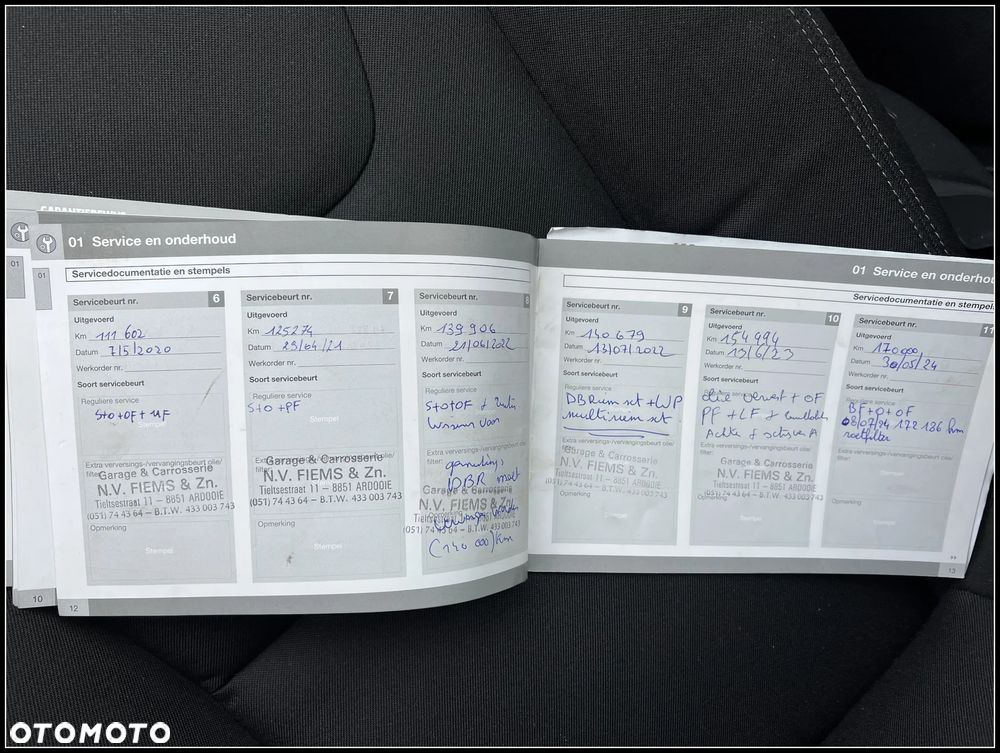 01 Service en onderhoud
Servicedocumentatie en stempels
Servicebeurt nr. 6
Uitgevoerd
Km 111 602
Datum 7/5/2020
Werkorder nr.
Soort servicebeurt
Reguliere service
S+O+OF + MF
Extra verversings-/vervangingsbeurt olie/
filter:
Garage & Carrosserie
N.V. FIEMS & Zn.
Tieltsestraat 11 – 8851 ARDOOIE
(051) 74 43 64 – B.T.W. 433 003 743
Opmerking
Stempel
Servicebeurt nr. 7
Uitgevoerd
Km 125274
Datum 29/04/21
Werkorder nr.
Soort servicebeurt
Reguliere service
S+O+PF
Stempel
Extra verversings-/vervangingsbeurt olie/
filter:
Garage & Carrosserie
N.V. FIEMS & Zn.
Tieltsestraat 11 – 8851 ARDOOIE
(051) 74 43 64 – B.T.W. 433 003 743
Opmerking
Stempel
Servicebeurt nr. 8
Uitgevoerd
Km 139 906
Datum 21/06/2022
Werkorder nr.
Soort servicebeurt
Reguliere service
S+O+OF +
Extra verversings-/vervangingsbeurt olie/
DBR moet
Garage & Carrosserie
N.V. FIEMS & Zn.
(051) 74 43 64 – B.T.W. 433 003 743
(140 000) km
10
12
01 Service en onderhou
Servicedocumentatie en stempels
Servicebeurt nr. 9
Uitgevoerd
Km 140 679
Datum 13/07/2022
Werkorder nr.
Soort servicebeurt
Reguliere service
DBRiem set + WP
multiriem set
Extra verversings-/vervangingsbeurt olie/
filter:
Garage & Carrosserie
N.V. FIEMS & Zn.
Tieltsestraat 11 – 8851 ARDOOIE
(051) 74 43 64 – B.T.W. 433 003 743
Opmerking
Stempel
Servicebeurt nr. 10
Uitgevoerd
Km 154 994
Datum 13/6/23
Werkorder nr.
Soort servicebeurt
Reguliere service
olie ververst + OF
PF + LF +
Extra verversings-/vervangingsbeurt olie/
filter:
Garage & Carrosserie
N.V. FIEMS & Zn.
Tieltsestraat 11 – 8851 ARDOOIE
(051) 74 43 64 – B.T.W. 433 003 743
Opmerking
Stempel
Servicebeurt nr. 11
Uitgevoerd
Km 170000
Datum 30/05/24
Werkorder nr.
Soort servicebeurt
Reguliere service
BF+O+OF
08/07/24 172 186 km
Extra verversings-/vervangingsbeurt olie/
filter:
Opmerking
Stempel
13
01
01
OTOMOTO